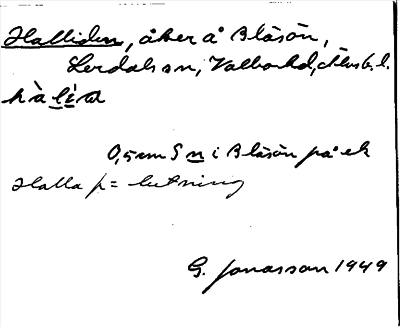 Halliden, åker å Blåsön,
Lerdals sn, Valbo hd, Älvsb. l.
hàlìdα
0,5 mm S n i Blåsön på ek
Halla f = lutning
G. Jonasson 1949